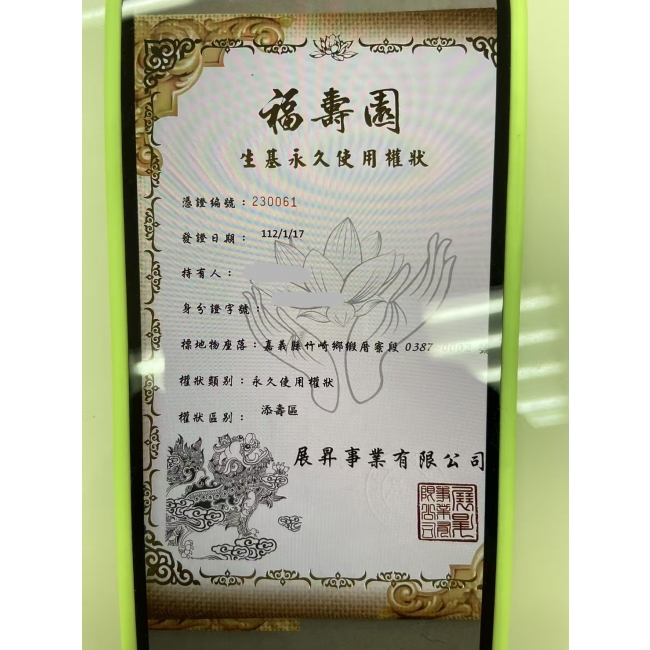 福壽園
生基永久使用權狀
憑證編號：230061
發證日期：112/1/17
持有人：
身分證字號：
標地物座落：嘉義縣竹崎鄉緞厝寮段 0387
權狀類別：永久使用權狀
權狀區別：添壽區
展昇事業有限公司